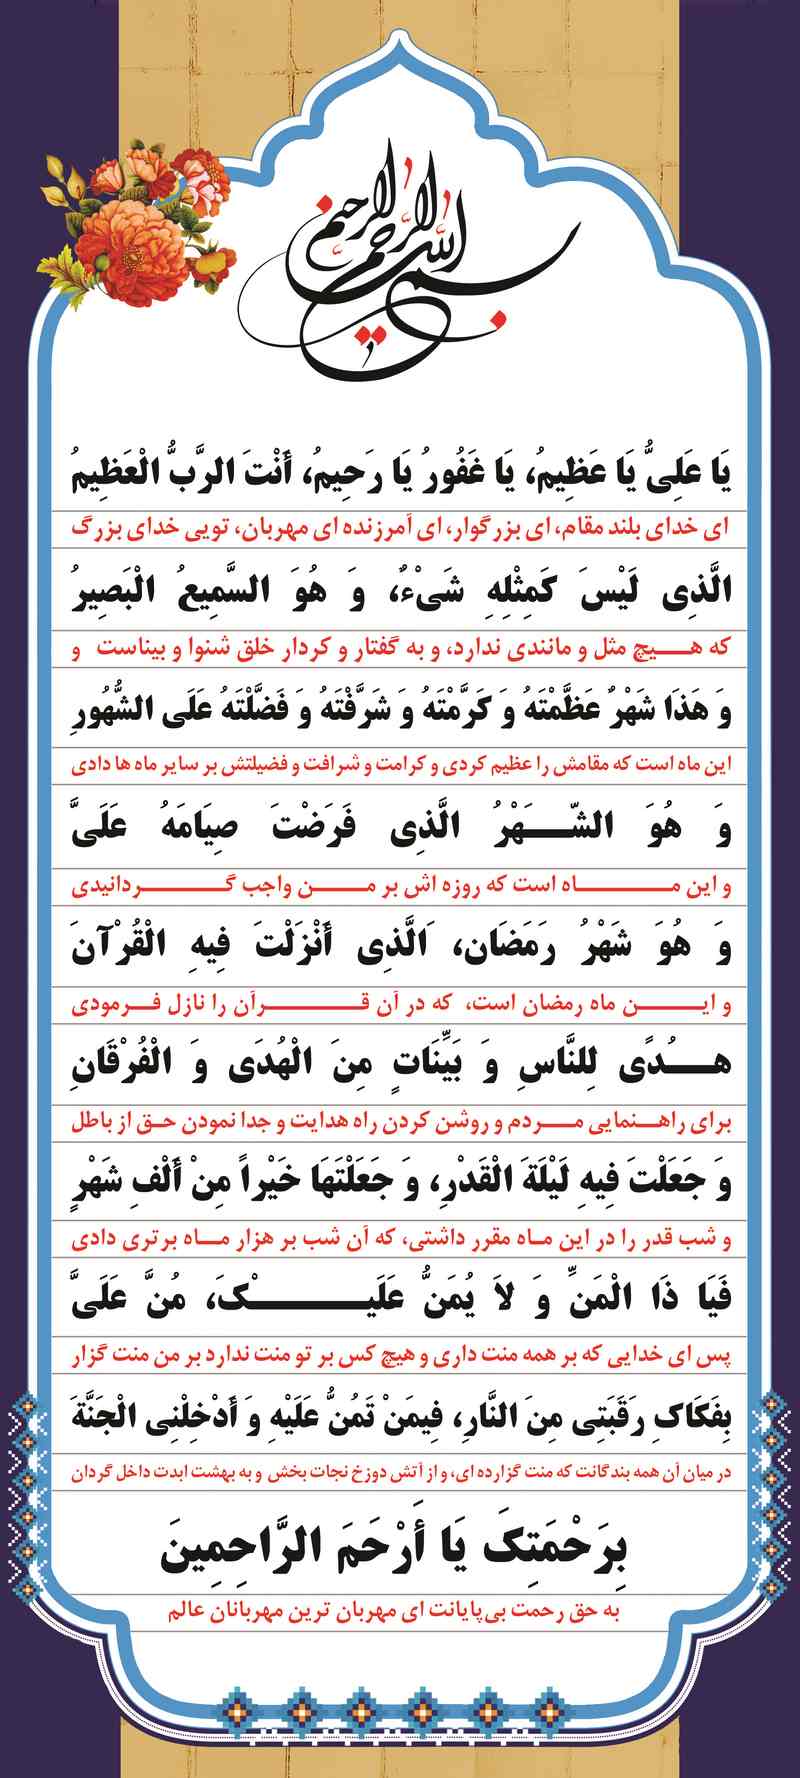 بسم الله الرحمن الرحیم
یَا عَلِیُّ یَا عَظِیمُ، یَا غَفُورُ یَا رَحِیمُ، أَنْتَ الرَّبُّ الْعَظِیمُ
ای خدای بلند مقام، ای بزرگوار، ای آمرزنده ای مهربان، تویی خدای بزرگ
الَّذِی لَیْسَ کَمِثْلِهِ شَیْءٌ، وَ هُوَ السَّمِیعُ الْبَصِیرُ
که هیچ مثل و مانندی ندارد، و به گفتار و کردار خلق شنوا و بیناست و
وَ هَذَا شَهْرٌ عَظَّمْتَهُ وَ کَرَّمْتَهُ وَ شَرَّفْتَهُ وَ فَضَّلْتَهُ عَلَی الشُّهُورِ
این ماه است که مقامش را عظیم کردی و کرامت و شرافت و فضیلتش بر سایر ماه ها دادی
وَ هُوَ الشَّهْرُ الَّذِی فَرَضْتَ صِیَامَهُ عَلَیَّ
و این ماه است که روزه اش بر من واجب گردانیدی
وَ هُوَ شَهْرُ رَمَضَان، اَلَّذِی أَنْزَلْتَ فِیهِ الْقُرْآنَ
و این ماه رمضان است، که در آن قرآن را نازل فرمودی
هُدًی لِلنَّاسِ وَ بَیِّنَاتٍ مِنَ الْهُدَی وَ الْفُرْقَانِ
برای راهنمایی مردم و روشن کردن راه هدایت و جدا نمودن حق از باطل
وَ جَعَلْتَ فِیهِ لَیْلَةَ الْقَدْرِ، وَ جَعَلْتَهَا خَیْراً مِنْ أَلْفِ شَهْرٍ
و شب قدر را در این ماه مقرر داشتی، که آن شب بر هزار ماه برتری دادی
فَیَا ذَا الْمَنِّ وَ لاَ یُمَنُّ عَلَیْکَ، مُنَّ عَلَیَّ
پس ای خدایی که بر همه منت داری و هیچ کس بر تو منت ندارد بر من منت گزار
بِفَکَاکِ رَقَبَتِی مِنَ النَّارِ، فِیمَنْ تَمُنُّ عَلَیْهِ وَ أَدْخِلْنِی الْجَنَّةَ
در میان آن همه بندگانت که منت گزارده ای، و از آتش دوزخ نجات بخش و به بهشت ابدت داخل گردان
بِرَحْمَتِکَ یَا أَرْحَمَ الرَّاحِمِینَ
به حق رحمت بی‌پایانت ای مهربان ترین مهربانان عالم